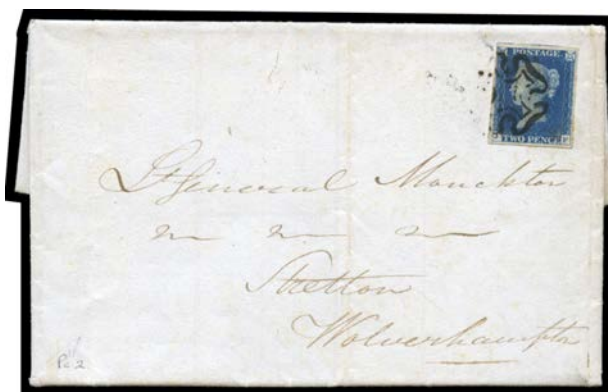 POSTAGE
TWO PENCE
Lt General Monckton
Stretton
Wolverhampton
Pc 2